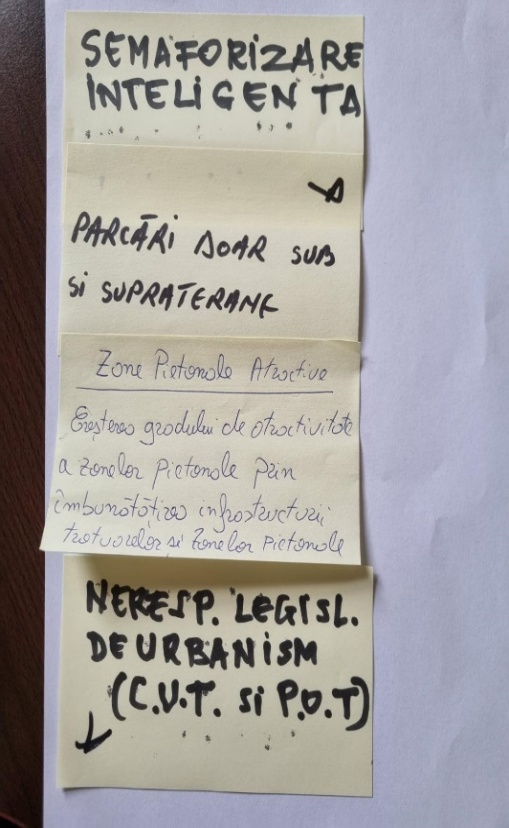 SEMAFORIZARE
INTELIGENTA
PARCĂRI DOAR SUB
Si SUPRATERANE
Zone Pietonale Atractive
Creșterea gradului de atractivitate
a zonelor pietonale prin
îmbunătățirea infrastructurii
trotuarelor si zonelor pietonale
NERESP. LEGISL.
DE URBANISM
(C.U.T. Si P.O.T)